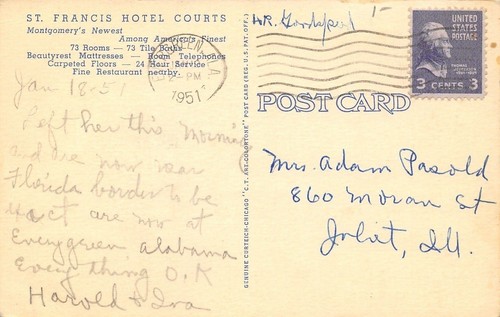 ST. FRANCIS HOTEL COURTS
Montgomery's Newest
Among America's Finest
73 Rooms — 73 Tile Baths
Beautyrest Mattresses — Room Telephones
Carpeted Floors — 24 Hour Service
Fine Restaurant nearby.
Jan 18-51
Left her this Mornin
and are now near
Florida border to be
exact are now at
Everygreen Alabama
Everything O.K
Harold & Iva
PM
1951
GENUINE CURTEICH-CHICAGO "C.T. ART-COLORTONE" POST CARD (REG. U.S. PAT. OFF.)
1-
UNITED STATES
POSTAGE
3 CENTS 3
POST CARD
Mrs. Adam Pasold
860 Moran St
Joliet, Ill.